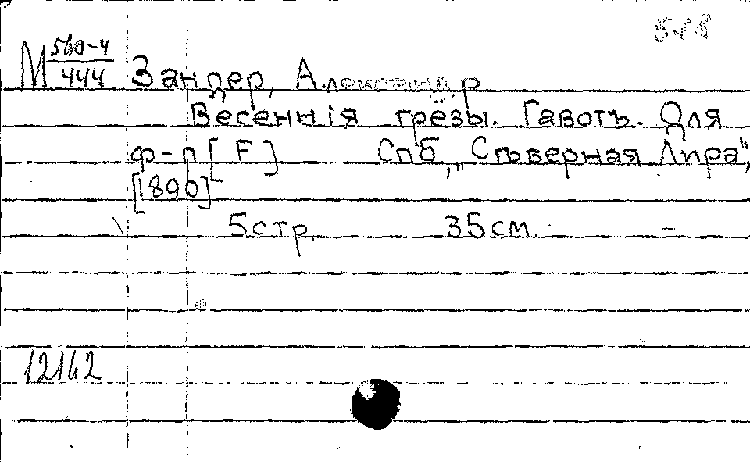 М 560-4/444 Зандер, Александр
Весеннія грёзы. Гавотъ. Для
ф-п [F] Спб, „Сѣверная Лира“,
[1890]
5 стр. 35 см. -
12162